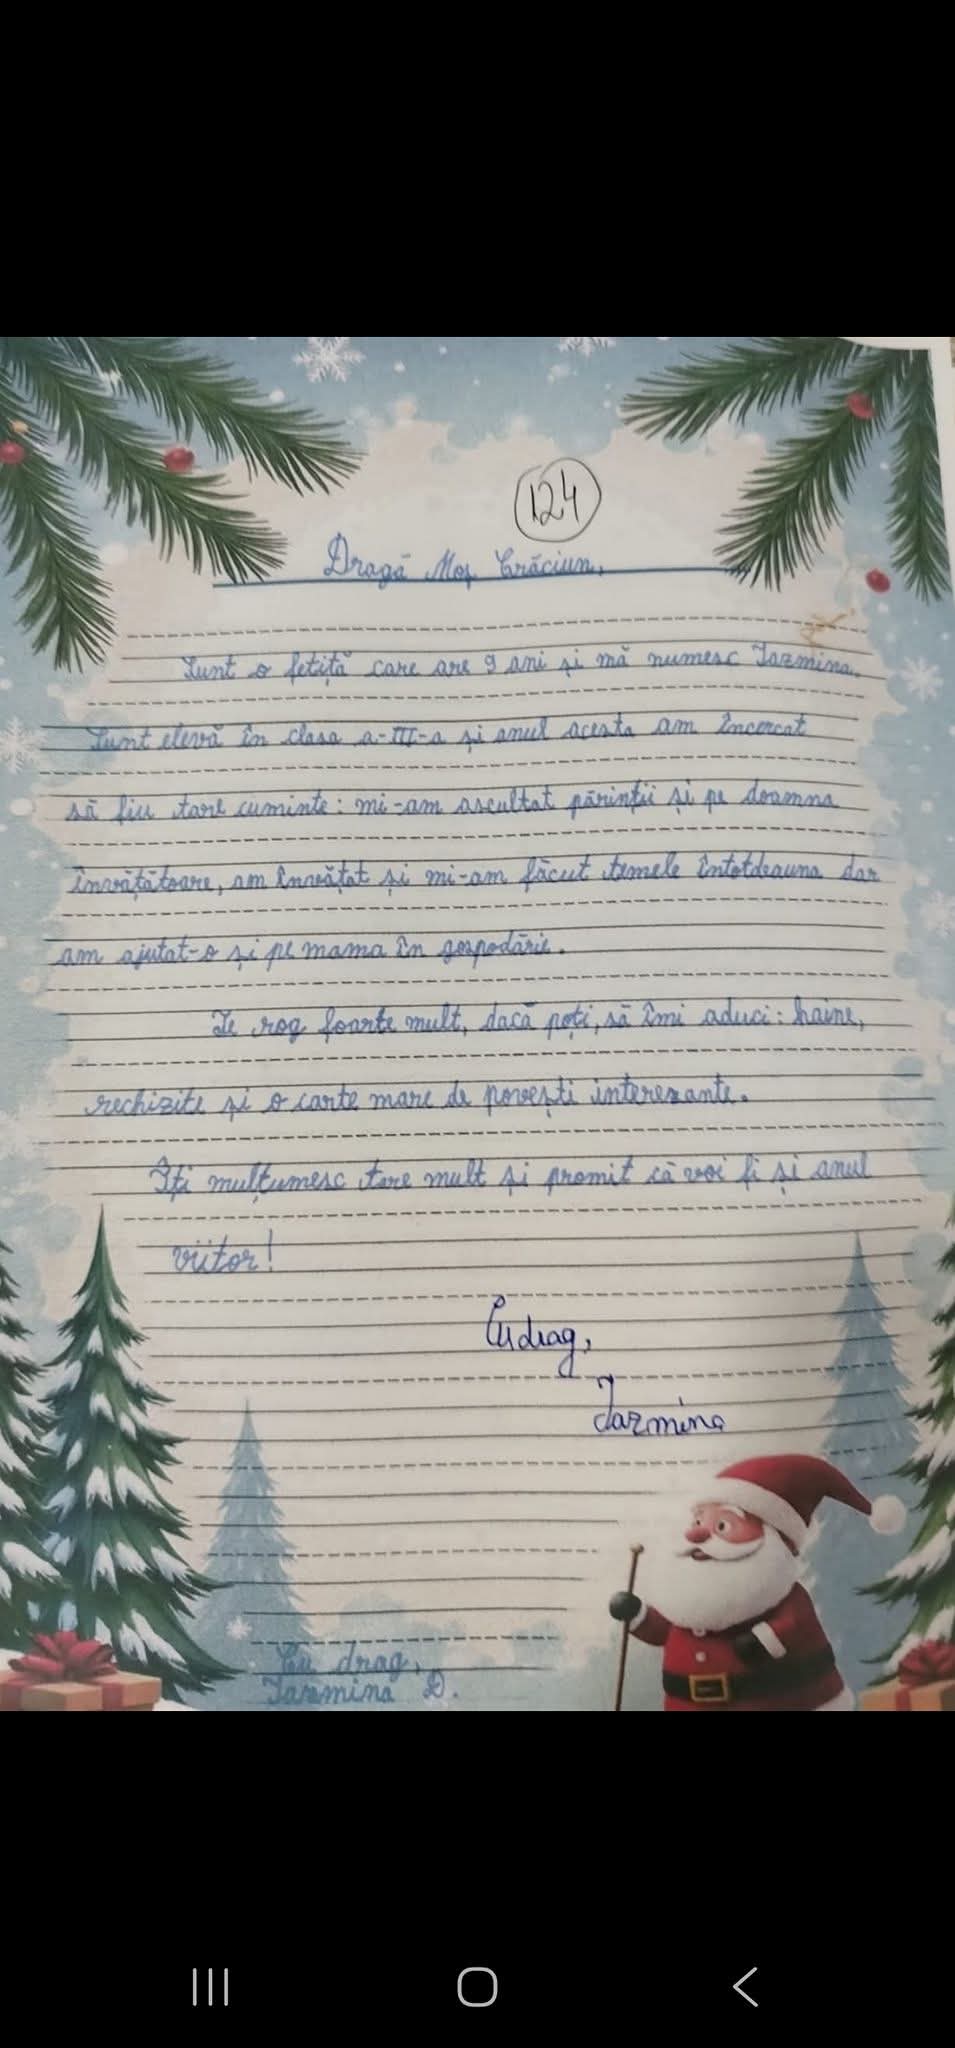 124
Dragă Moș Crăciun,
Sunt o fetiță care are 9 ani și mă numesc Iazmina.
Sunt elevă în clasa a-III-a și anul acesta am încercat
să fiu tare cuminte: mi-am ascultat părinții și pe doamna
învățătoare, am învățat și mi-am făcut temele întotdeauna dar
am ajutat-o și pe mama în gospodărie.
Te rog foarte mult, dacă poți, să îmi aduci: haine,
rechizite și o carte mare de povești interezante.
Îți mulțumesc tare mult și promit că voi fi și anul
viitor!
Cu drag,
Iazmina
Cu drag,
Iazmina D.